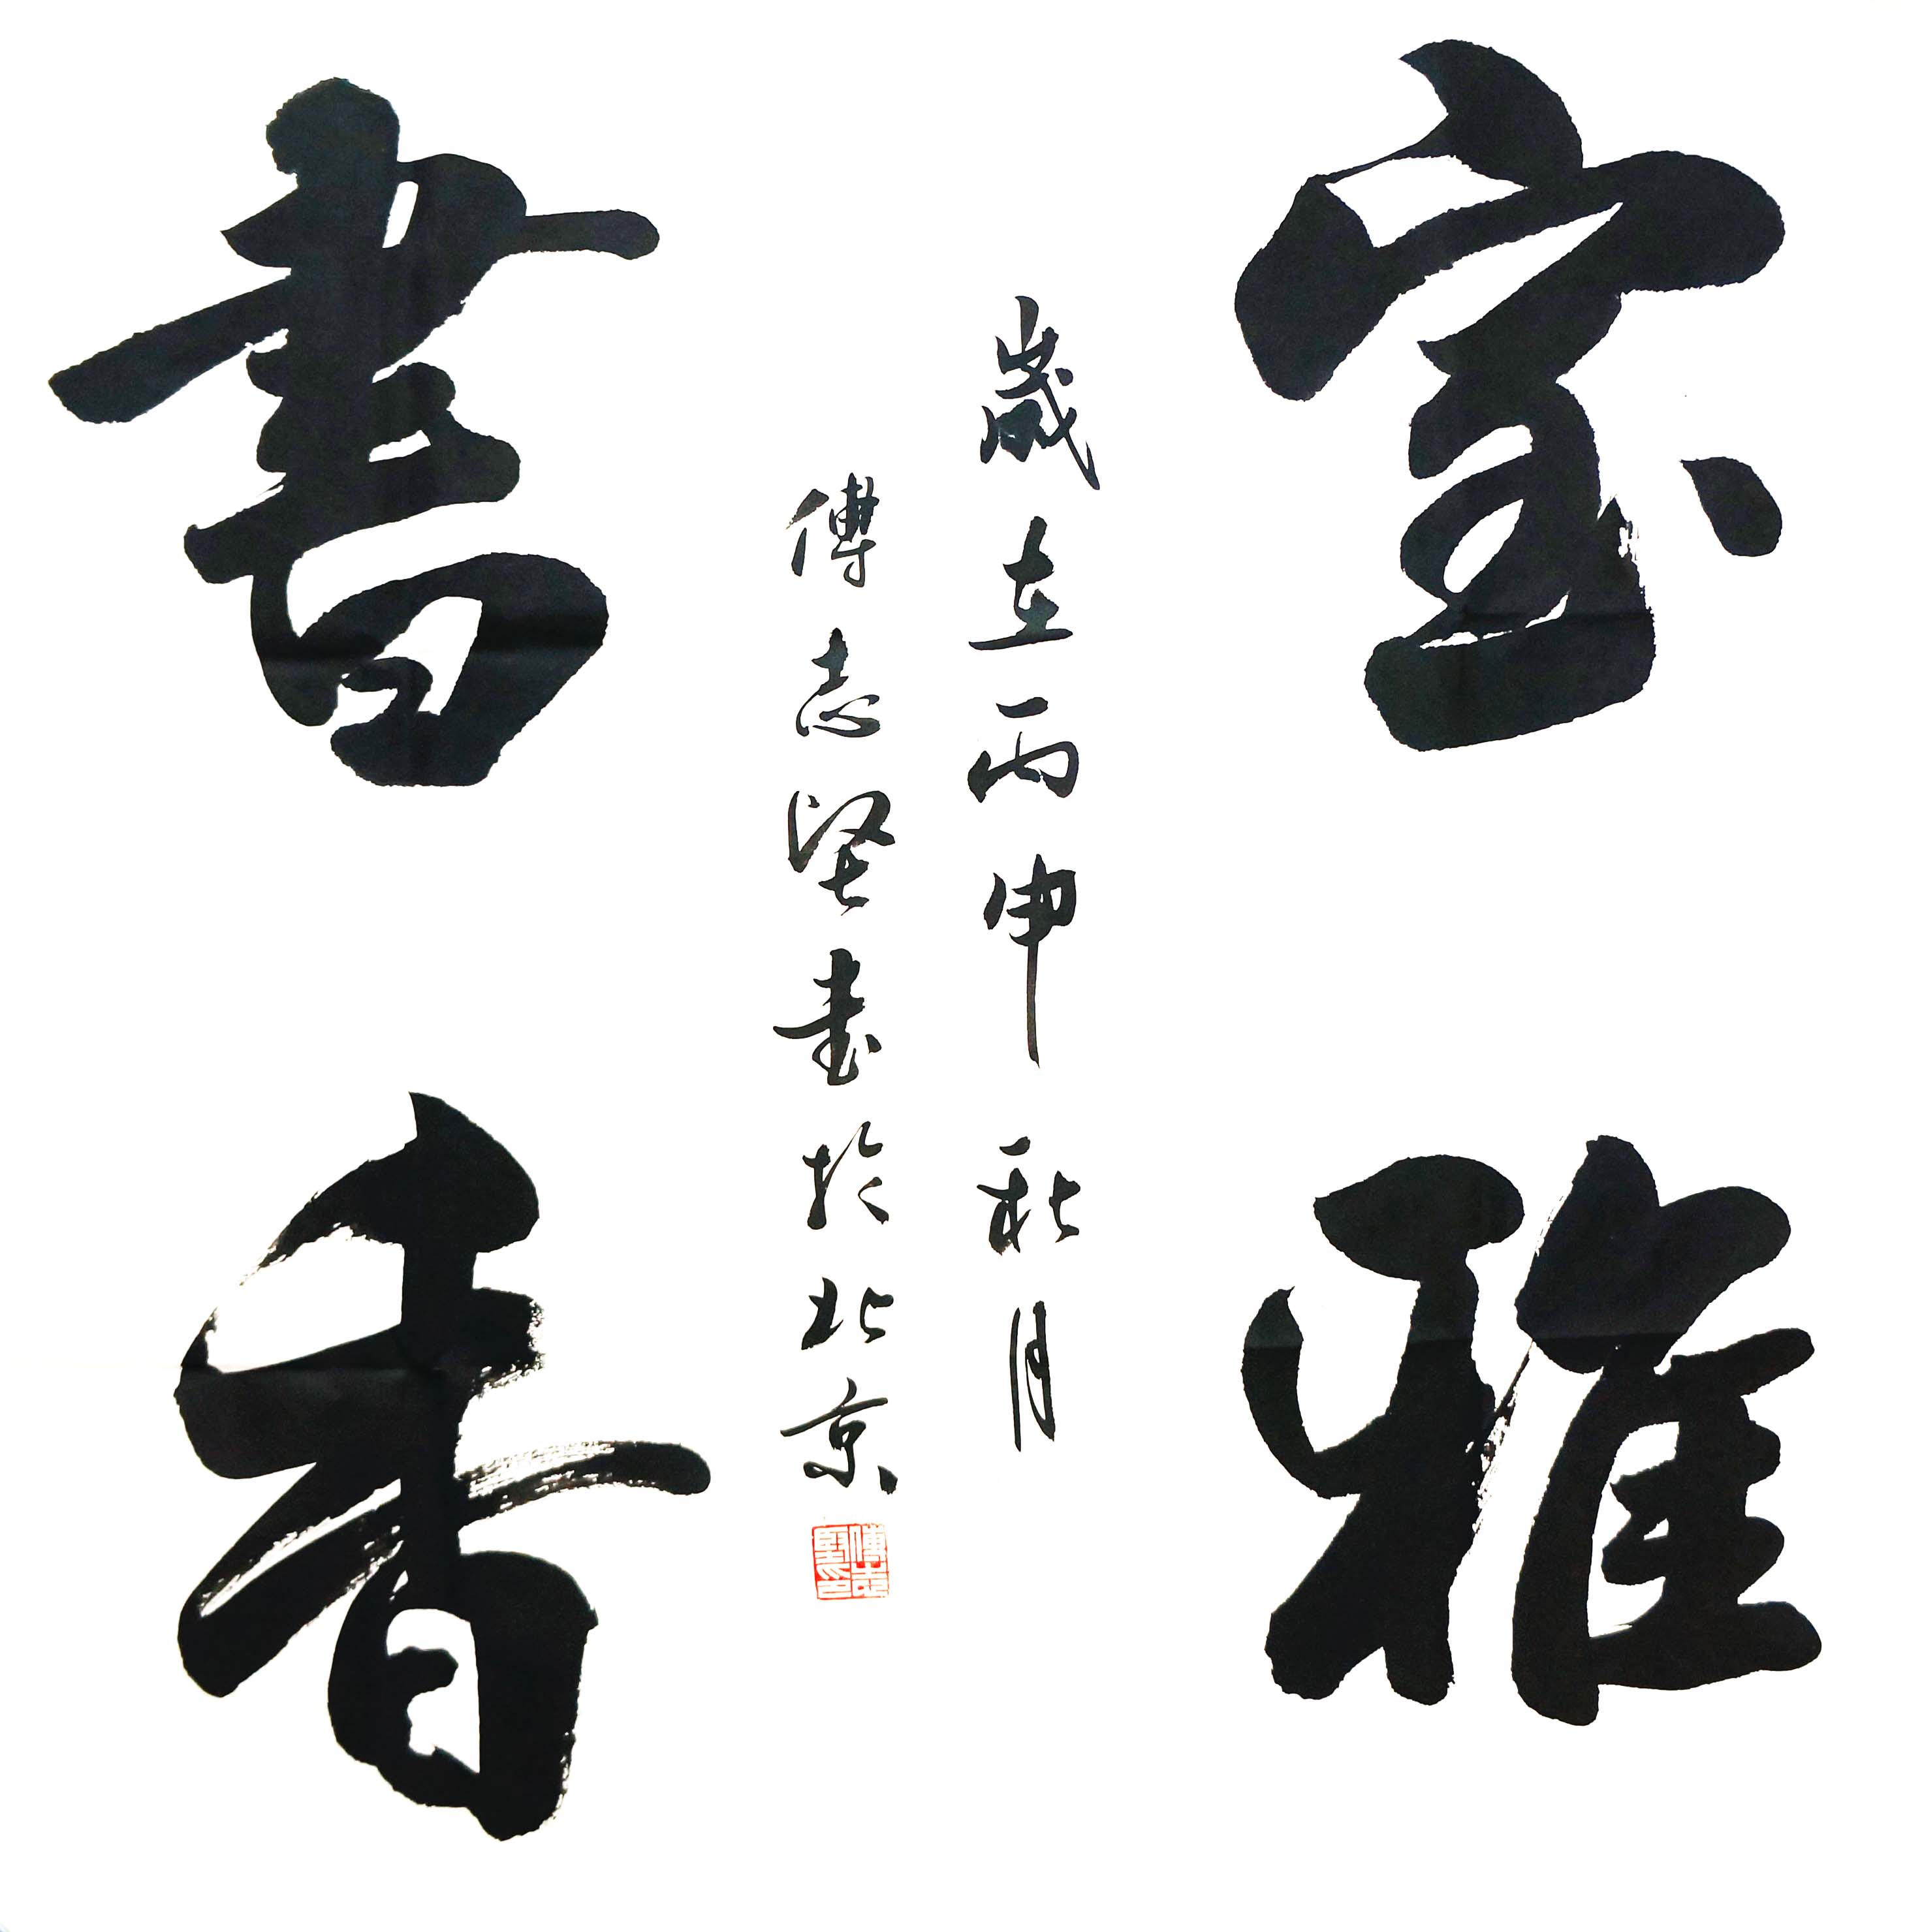 室雅
歲在丙申秋月
傅志坚書於北京
傅志堅印
書香